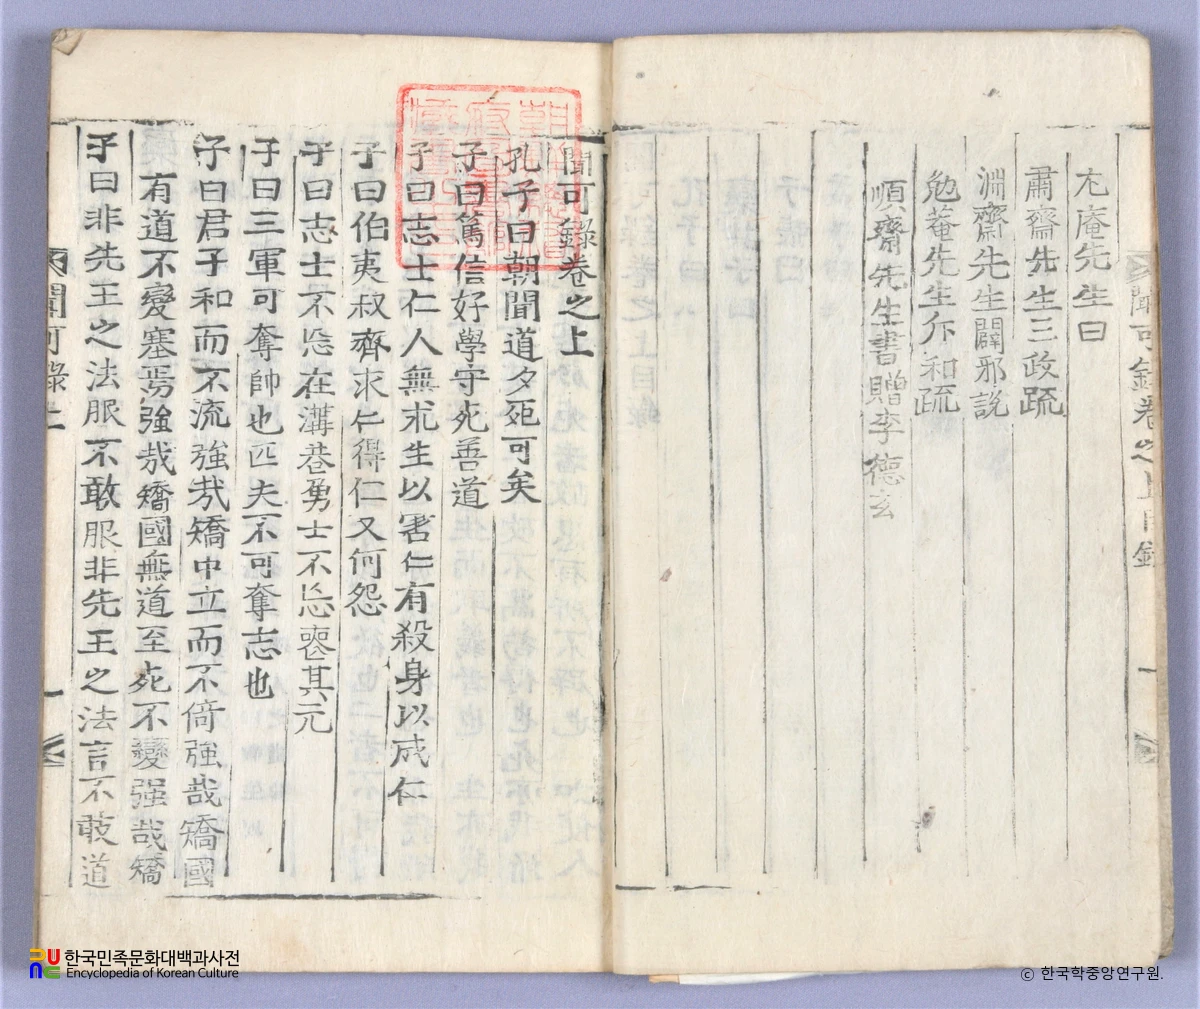 尤庵先生曰
肅齋先生三政疏
淵齋先生闢邪說
勉菴先生斥和疏
順齋先生書贈李德玄
聞可錄卷之上
孔子曰朝聞道夕死可矣
子曰篤信好學守死善道
子曰志士仁人無求生以害仁有殺身以成仁
子曰伯夷叔齊求仁得仁又何怨
子曰志士不忘在溝壑勇士不忘喪其元
子曰三軍可奪帥也匹夫不可奪志也
子曰君子和而不流強哉矯中立而不倚強哉矯國
有道不變塞焉強哉矯國無道至死不變强哉矯
子曰非先王之法服不敢服非先王之法言不敢道
聞可錄卷之上目錄
聞可錄上
한국민족문화대백과사전
Encyclopedia of Korean Culture
© 한국학중앙연구원.